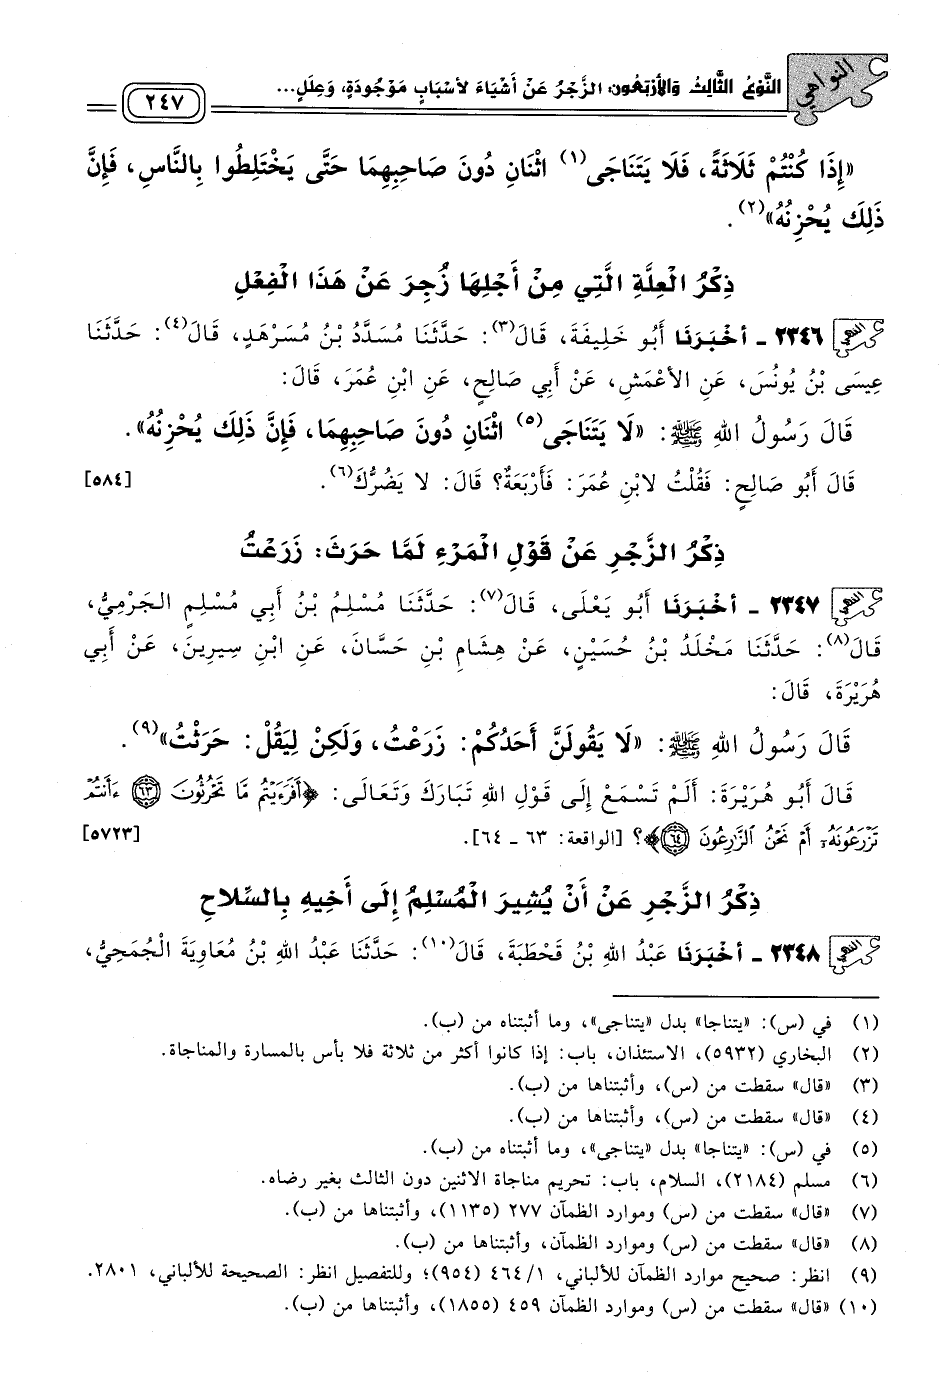 النواهي
النَّوْعُ الثَّالِثُ وَالأَرْبَعُون: الزَّجْرُ عَنْ أَشْيَاءَ لأَسْبَابٍ مَوْجُودَةٍ، وَعِلَلٍ...
٢٤٧
«إِذَا كُنْتُمْ ثَلَاثَةً، فَلَا يَتَنَاجَى(١) اثْنَانِ دُونَ صَاحِبِهِمَا حَتَّى يَخْتَلِطُوا بِالنَّاسِ، فَإِنَّ
ذَلِكَ يُحْزِنُهُ»(٢).
ذِكْرُ الْعِلَّةِ الَّتِي مِنْ أَجْلِهَا زُجِرَ عَنْ هَذَا الْفِعْلِ
٢٣٤٦ - أَخْبَرَنَا أَبُو خَلِيفَةَ، قَالَ(٣): حَدَّثَنَا مُسَدَّدُ بْنُ مُسَرْهَدٍ، قَالَ(٤): حَدَّثَنَا
عِيسَى بْنُ يُونُسَ، عَنِ الأَعْمَشِ، عَنْ أَبِي صَالِحٍ، عَنِ ابْنِ عُمَرَ، قَالَ:
قَالَ رَسُولُ اللهِ ﷺ: «لَا يَتَنَاجَى(٥) اثْنَانِ دُونَ صَاحِبِهِمَا، فَإِنَّ ذَلِكَ يُحْزِنُهُ».
قَالَ أَبُو صَالِحٍ: فَقُلْتُ لابْنِ عُمَرَ: فَأَرْبَعَةٌ؟ قَالَ: لا يَضُرُّكَ(٦). [٥٨٤]
ذِكْرُ الزَّجْرِ عَنْ قَوْلِ الْمَرْءِ لَمَّا حَرَثَ: زَرَعْتُ
٢٣٤٧ - أَخْبَرَنَا أَبُو يَعْلَى، قَالَ(٧): حَدَّثَنَا مُسْلِمُ بْنُ أَبِي مُسْلِمٍ الجَرْمِيُّ،
قَالَ(٨): حَدَّثَنَا مَخْلَدُ بْنُ حُسَيْنٍ، عَنْ هِشَامِ بْنِ حَسَّانَ، عَنِ ابْنِ سِيرِينَ، عَنْ أَبِي
هُرَيْرَةَ، قَالَ:
قَالَ رَسُولُ اللهِ ﷺ: «لَا يَقُولَنَّ أَحَدُكُمْ: زَرَعْتُ، وَلَكِنْ لِيَقُلْ: حَرَثْتُ»(٩).
قَالَ أَبُو هُرَيْرَةَ: أَلَمْ تَسْمَعْ إِلَى قَوْلِ اللهِ تَبَارَكَ وَتَعَالَى: ﴿أَفَرَءَيْتُم مَّا تَحْرُثُونَ ۝٦٣ ءَأَنتُمْ
تَزْرَعُونَهُۥٓ أَمْ نَحْنُ ٱلزَّٰرِعُونَ ۝٦٤﴾؟ [الواقعة: ٦٣ - ٦٤]. [٥٧٢٣]
ذِكْرُ الزَّجْرِ عَنْ أَنْ يُشِيرَ الْمُسْلِمُ إِلَى أَخِيهِ بِالسِّلَاحِ
٢٣٤٨ - أَخْبَرَنَا عَبْدُ اللهِ بْنُ قَحْطَبَةَ، قَالَ(١٠): حَدَّثَنَا عَبْدُ اللهِ بْنُ مُعَاوِيَةَ الْجُمَحِيُّ،
(١) في (س): «يتناجا» بدل «يتناجى»، وما أثبتناه من (ب).
(٢) البخاري (٥٩٣٢)، الاستئذان، باب: إذا كانوا أكثر من ثلاثة فلا بأس بالمسارة والمناجاة.
(٣) «قال» سقطت من (س)، وأثبتناها من (ب).
(٤) «قال» سقطت من (س)، وأثبتناها من (ب).
(٥) في (س): «يتناجا» بدل «يتناجى»، وما أثبتناه من (ب).
(٦) مسلم (٢١٨٤)، السلام، باب: تحريم مناجاة الاثنين دون الثالث بغير رضاه.
(٧) «قال» سقطت من (س) وموارد الظمآن ٢٧٧ (١١٣٥)، وأثبتناها من (ب).
(٨) «قال» سقطت من (س) وموارد الظمآن، وأثبتناها من (ب).
(٩) انظر: صحيح موارد الظمآن للألباني، ١/ ٤٦٤ (٩٥٤)؛ وللتفصيل انظر: الصحيحة للألباني، ٢٨٠١.
(١٠) «قال» سقطت من (س) وموارد الظمآن ٤٥٩ (١٨٥٥)، وأثبتناها من (ب).